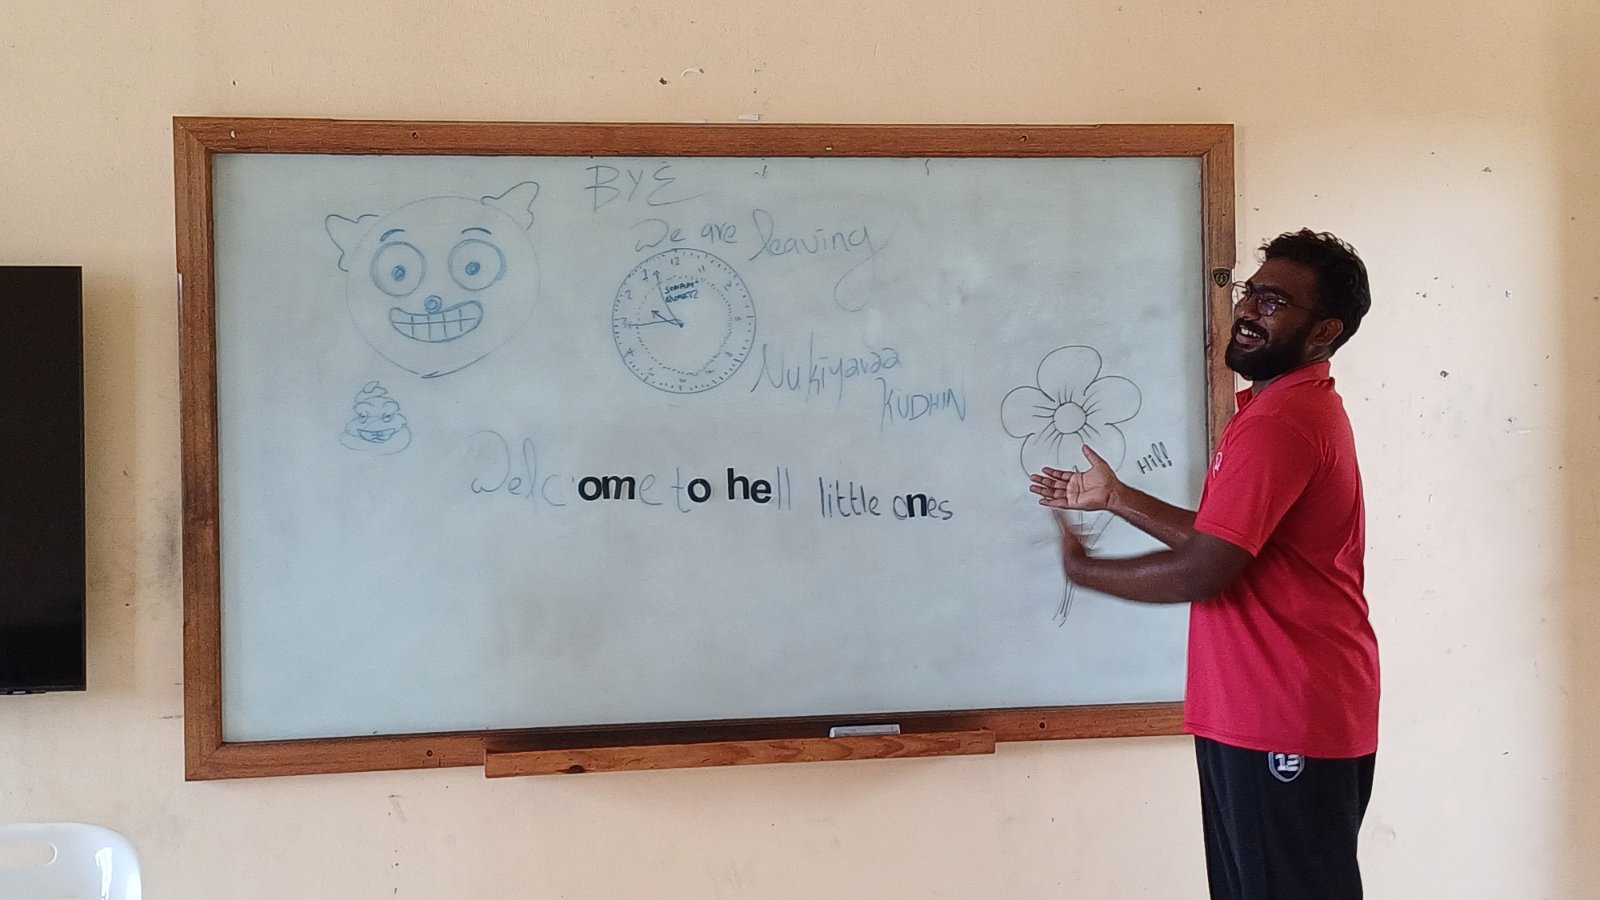 BYE
We are leaving
Nukiyavaa
KUDHIN
Welcome to hell little ones
Hi!!
12